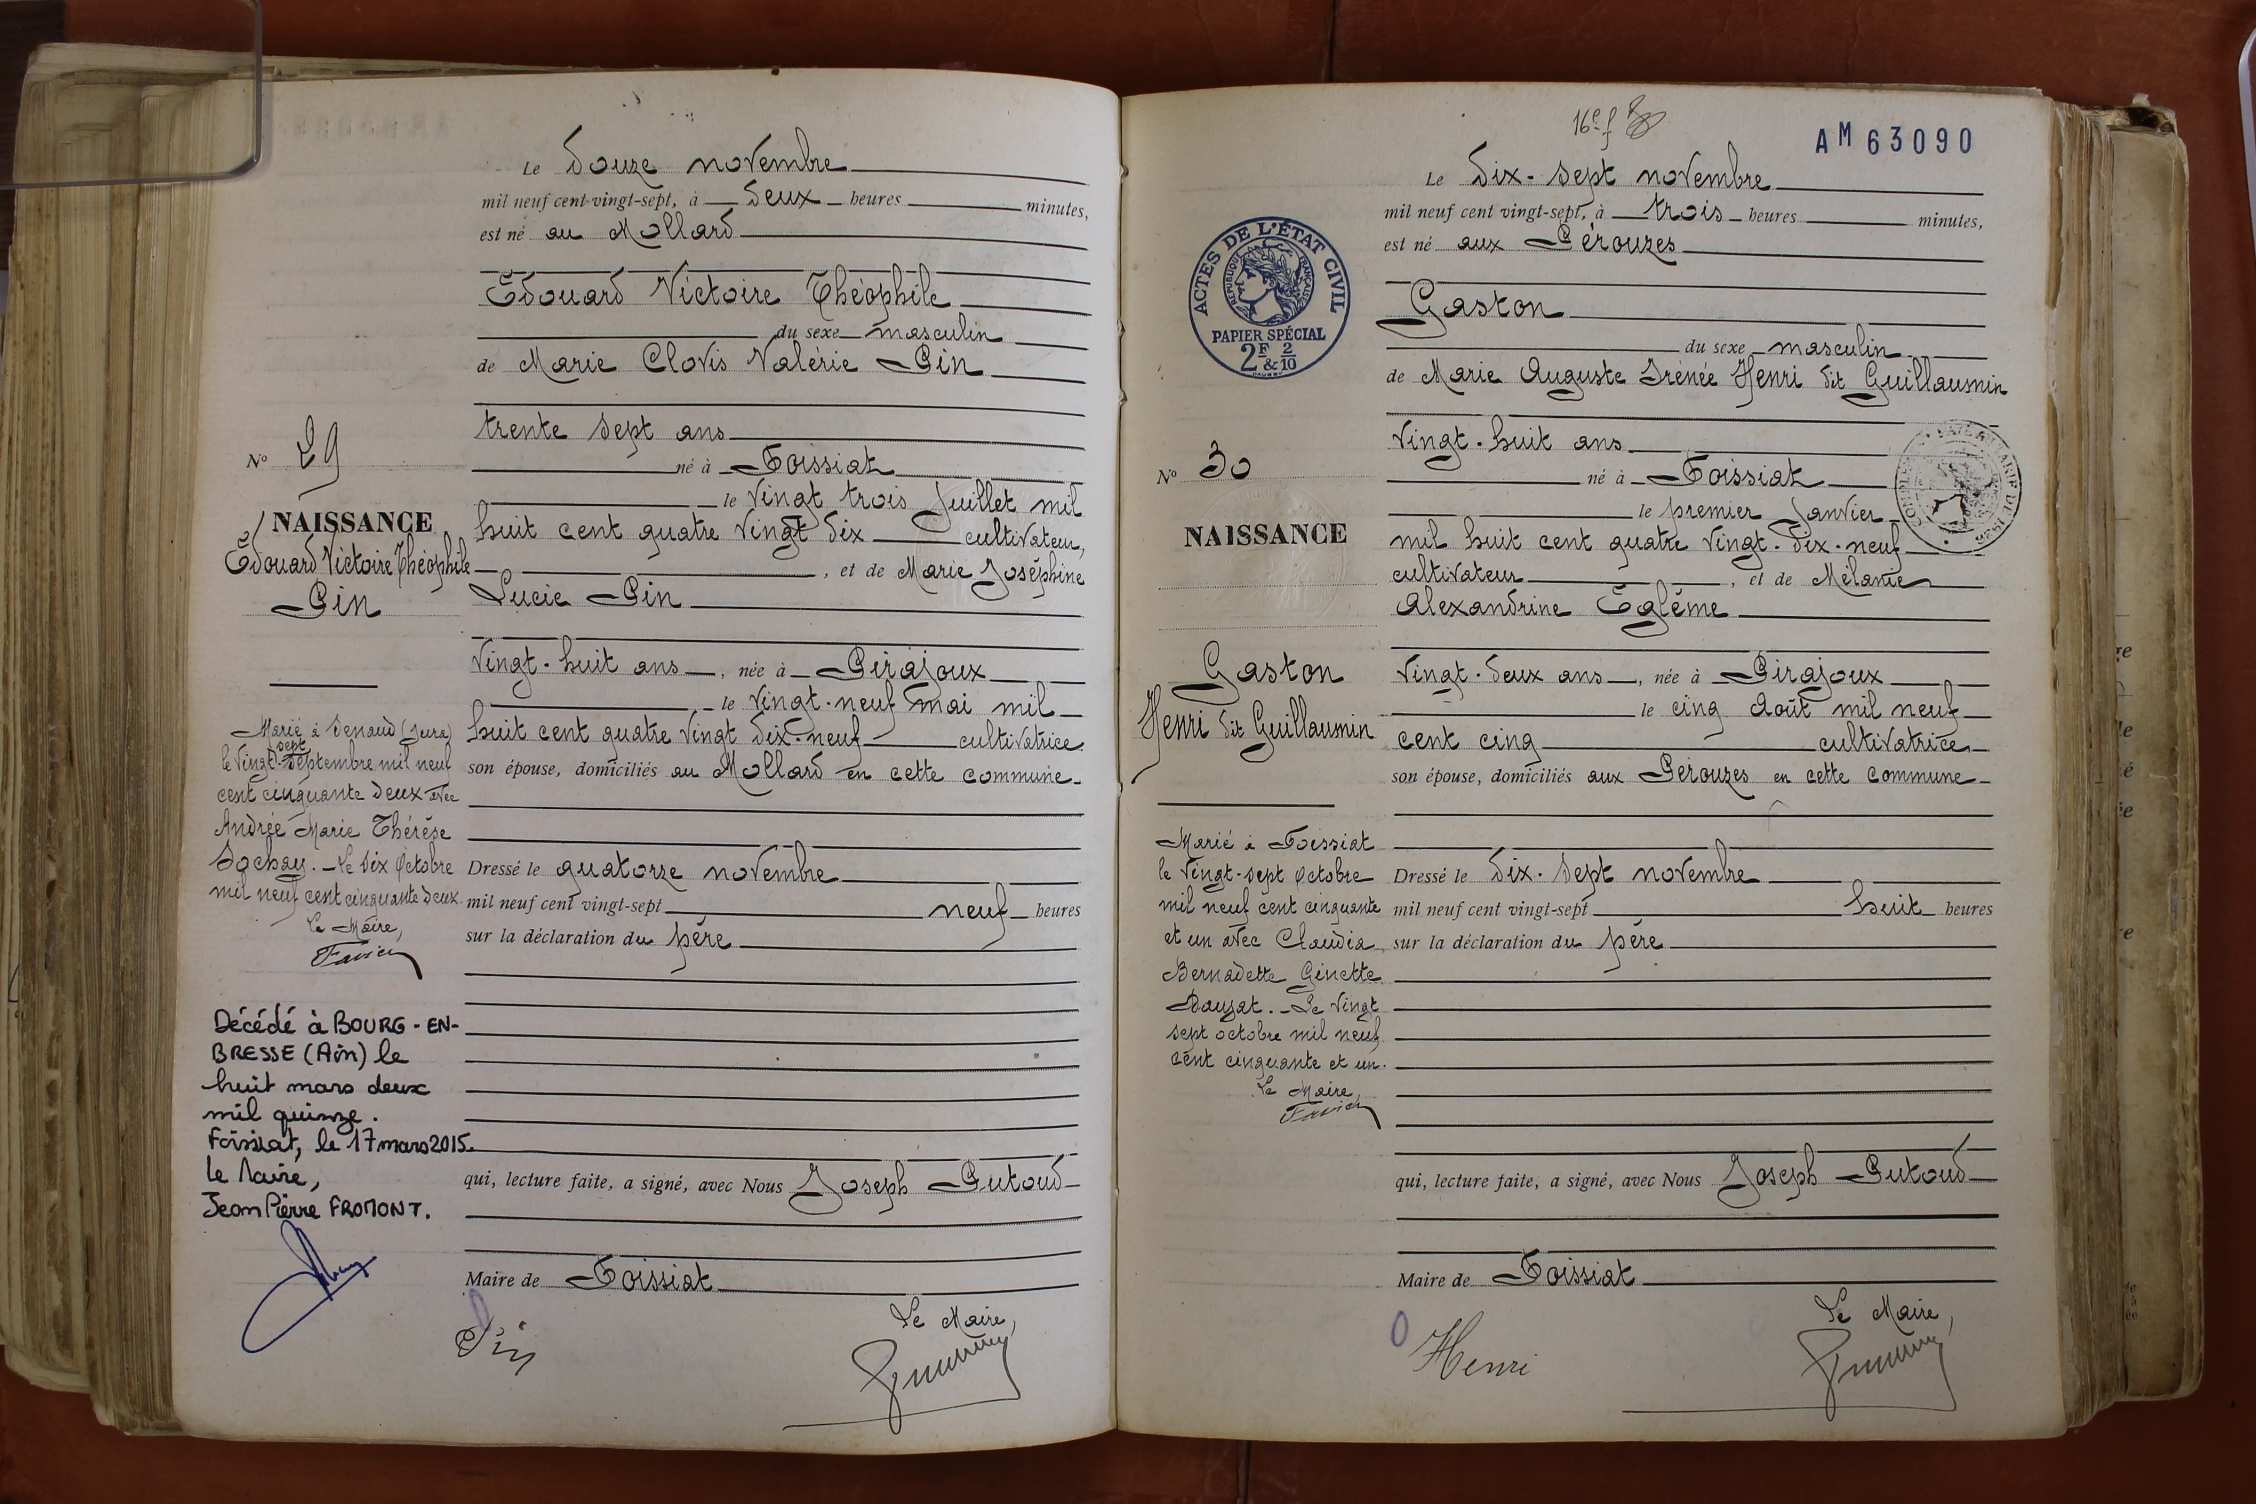 Le douze novembre
mil neuf cent vingt-sept, à deux heures minutes,
est né au Mollard
Edouard Victoire Théophile
du sexe masculin
de Marie Clovis Valérie Pin
trente sept ans
né à Foissiat
le vingt trois juillet mil
huit cent quatre vingt dix cultivateur,
, et de Marie Joséphine
Lucie Pin
vingt-huit ans, née à Pirajoux
le vingt-neuf mai mil
huit cent quatre vingt dix-neuf cultivatrice
son épouse, domiciliés au Mollard en cette commune
Dressé le quatorze novembre
mil neuf cent vingt-sept neuf heures
sur la déclaration du père
qui, lecture faite, a signé, avec Nous Joseph Putoud
Maire de Foissiat
Le Maire,
Pin
N° 29
NAISSANCE
Edouard Victoire Théophile
Pin
Marié à (Jura)
le vingt-sept septembre mil neuf
cent cinquante deux avec
Andrée Marie Thérèse
Sochay. - Le dix octobre
mil neuf cent cinquante deux
Le Maire,
Favier
Décédé à BOURG-EN-
BRESSE (Ain) le
huit mars deux
mil quinze.
Foissiat, le 17 mars 2015.
Le Maire,
Jean Pierre FROMONT.
16e f
AM 63090
ACTES DE L'ÉTAT CIVIL
RÉPUBLIQUE FRANÇAISE
PAPIER SPÉCIAL
2F & 2/10
Le dix-sept novembre
mil neuf cent vingt-sept, à trois heures minutes,
est né aux Pérouzes
Gaston
du sexe masculin
de Marie Auguste Irénée Henri dit Guillaumin
vingt-huit ans
né à Foissiat
le premier janvier
mil huit cent quatre vingt-dix-neuf
cultivateur, et de Mélanie
Alexandrine Eglème
vingt-deux ans, née à Pirajoux
le cinq août mil neuf
cent cinq cultivatrice
son épouse, domiciliés aux Pérouzes en cette commune
Dressé le dix-sept novembre
mil neuf cent vingt-sept huit heures
sur la déclaration du père
qui, lecture faite, a signé, avec Nous Joseph Putoud
Maire de Foissiat
Le Maire,
Henri
N° 30
NAISSANCE
Gaston
Henri dit Guillaumin
Marié à Foissiat
le vingt-sept octobre
mil neuf cent cinquante
et un avec Claudia
Bernadette Ginette
Dauzat. - Le vingt
sept octobre mil neuf
cent cinquante et un.
Le Maire,
Favier